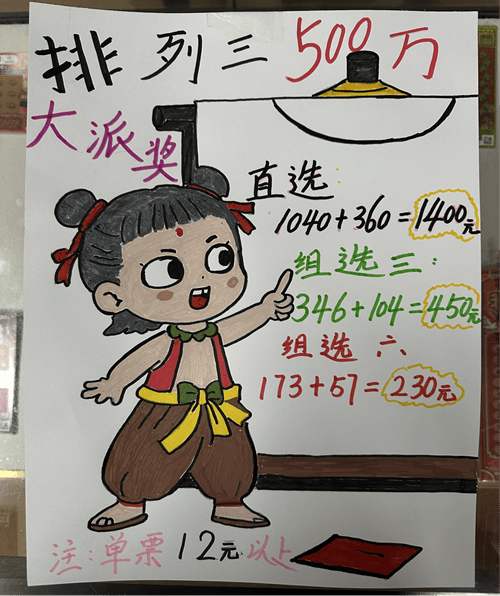 排列三500万
大派奖
直选
1040+360=1400元
组选三:
346+104=450元
组选六
173+57=230元
注:单票12元以上